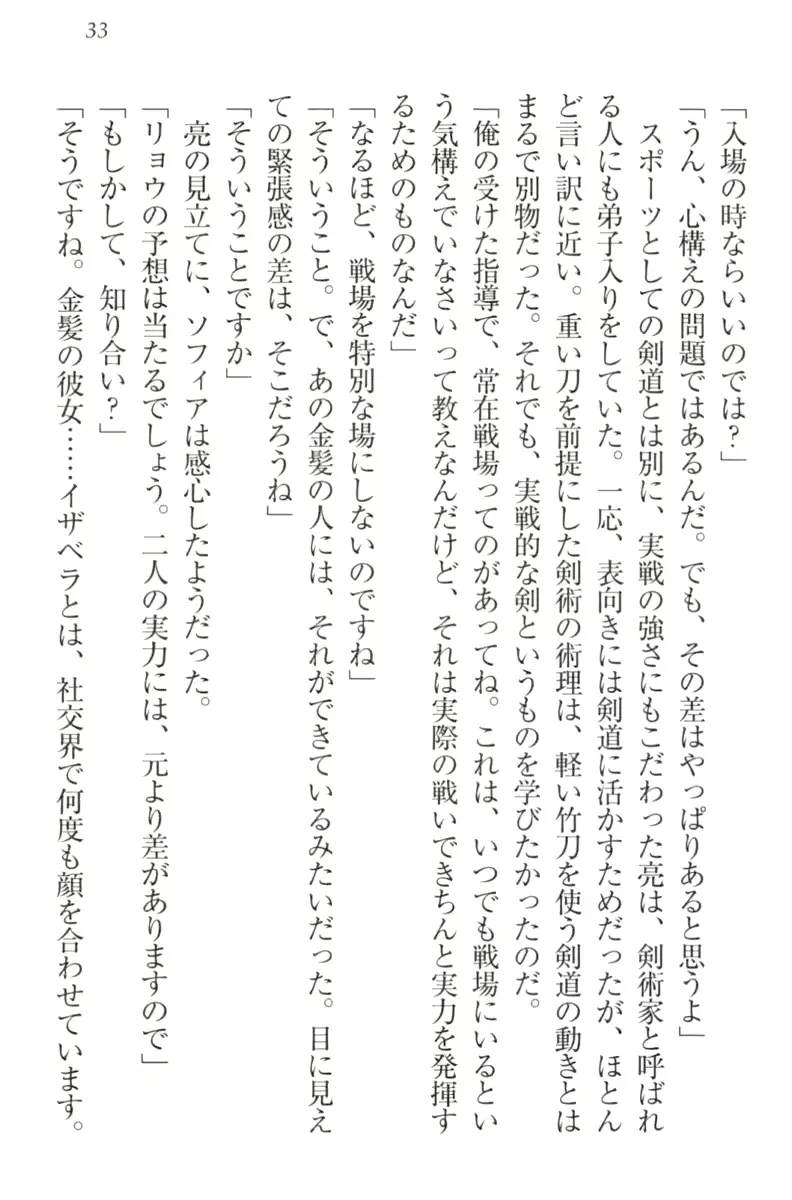 33
「入場の時ならいいのでは？」
「うん、心構えの問題ではあるんだ。でも、その差はやっぱりあると思うよ」
　スポーツとしての剣道とは別に、実戦の強さにもこだわった亮は、剣術家と呼ばれ
る人にも弟子入りをしていた。一応、表向きには剣道に活かすためだったが、ほとん
ど言い訳に近い。重い刀を前提にした剣術の術理は、軽い竹刀を使う剣道の動きとは
まるで別物だった。それでも、実戦的な剣というものを学びたかったのだ。
「俺の受けた指導で、常在戦場ってのがあってね。これは、いつでも戦場にいるとい
う気構えでいなさいって教えなんだけど、それは実際の戦いできちんと実力を発揮す
るためのものなんだ」
「なるほど、戦場を特別な場にしないのですね」
「そういうこと。で、あの金髪の人には、それができているみたいだった。目に見え
ての緊張感の差は、そこだろうね」
「そういうことですか」
　亮の見立てに、ソフィアは感心したようだった。
「リョウの予想は当たるでしょう。二人の実力には、元より差がありますので」
「もしかして、知り合い？」
「そうですね。金髪の彼女……イザベラとは、社交界で何度も顔を合わせています。